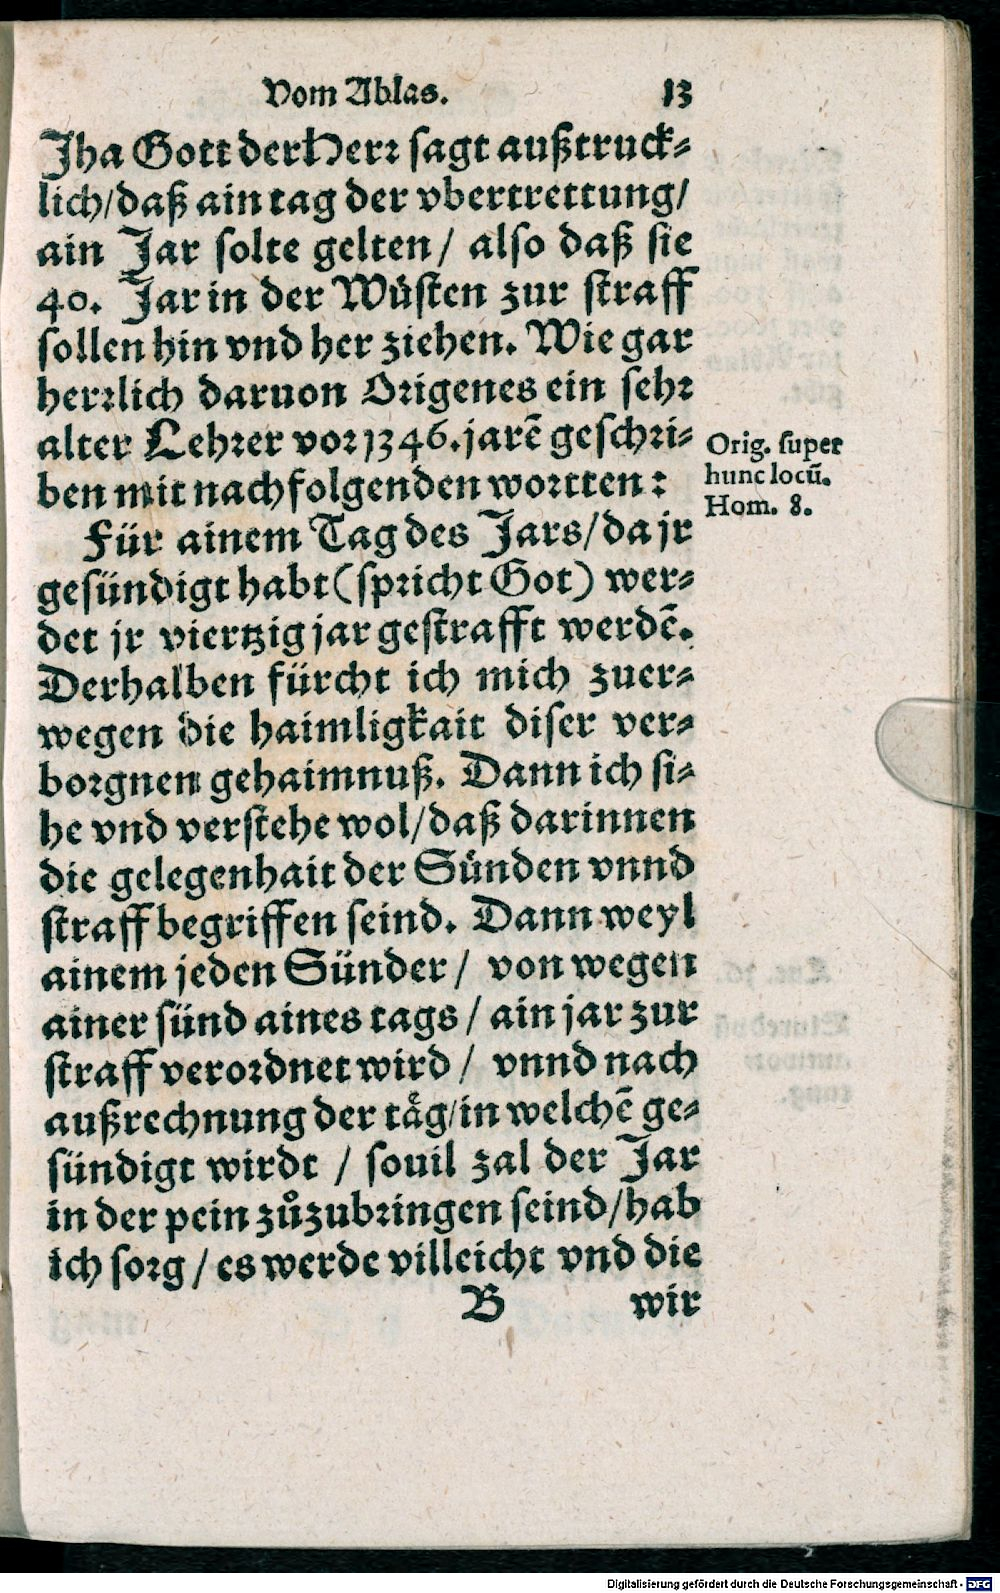 Vom Ablas. 13
Jha Gott der Herr sagt außtruck-
lich/daß ain tag der vbertrettung/
ain Jar solte gelten / also daß sie
40. Jar in der Wůsten zur straff
sollen hin vnd her ziehen. Wie gar
herrlich daruon Origenes ein sehr
alter Lehrer vor 1346. jarẽ geschri-
ben mit nachfolgenden wortten:
Orig. super
hunc locũ.
Hom. 8.
Für ainem Tag des Jars/da jr
gesündigt habt (spricht Got) wer-
det jr viertzig jar gestrafft werdẽ.
Derhalben fürcht ich mich zuer-
wegen die haimligkait diser ver-
borgnen gehaimnuß. Dann ich si-
he vnd verstehe wol/daß darinnen
die gelegenhait der Sünden vnnd
straff begriffen seind. Dann weyl
ainem jeden Sünder / von wegen
ainer sünd aines tags / ain jar zur
straff verordnet wird / vnnd nach
außrechnung der tåg/in welchẽ ge-
sündigt wirdt / souil zal der Jar
in der pein zůzubringen seind/hab
ich sorg / es werde villeicht vnd die
B wir
Digitalisierung gefördert durch die Deutsche Forschungsgemeinschaft - DFG